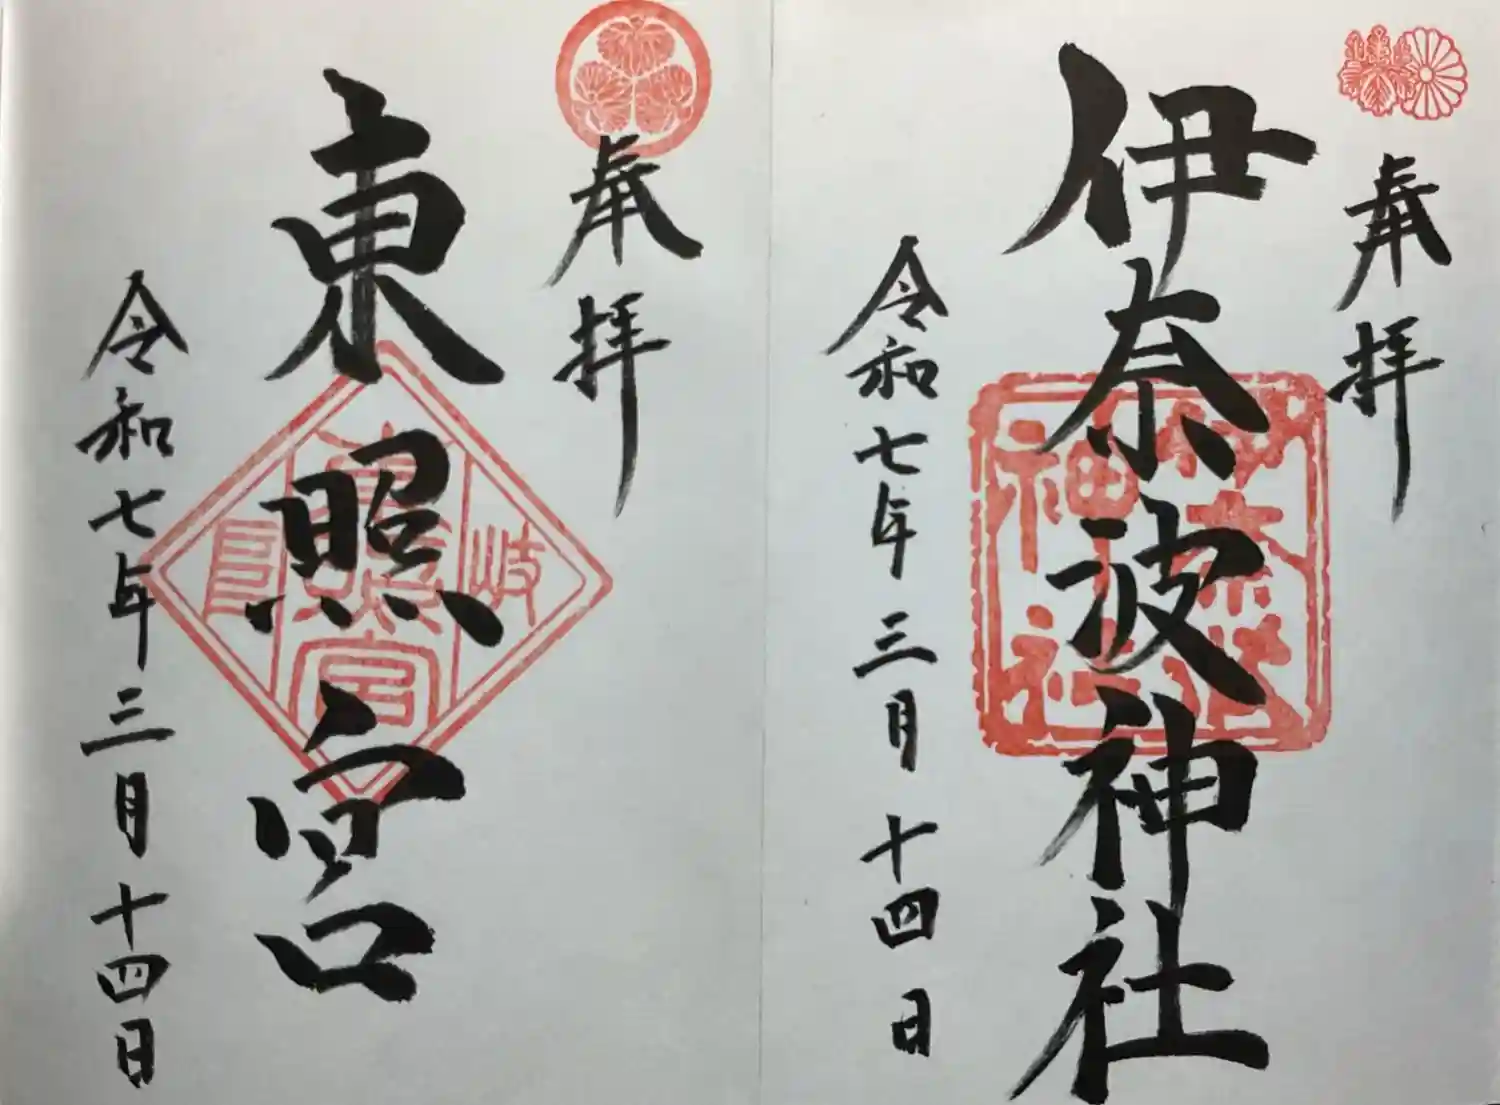 奉拝
伊奈波神社
伊奈波
神社
令和七年三月十四日
奉拝
東照宮
岐
東照宮
阜
令和七年三月十四日